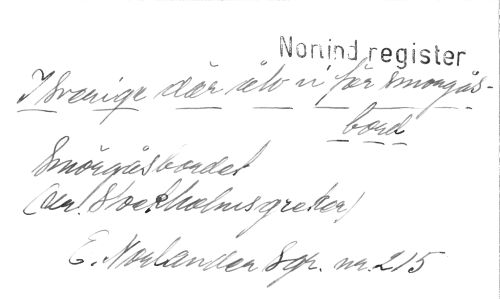 Nonind register
I Sverige där äto vi för smörgås-
bord
Smörgåsbordet
(ur. Stockholmsgreker)
E. Norlander Sgr. nr. 215